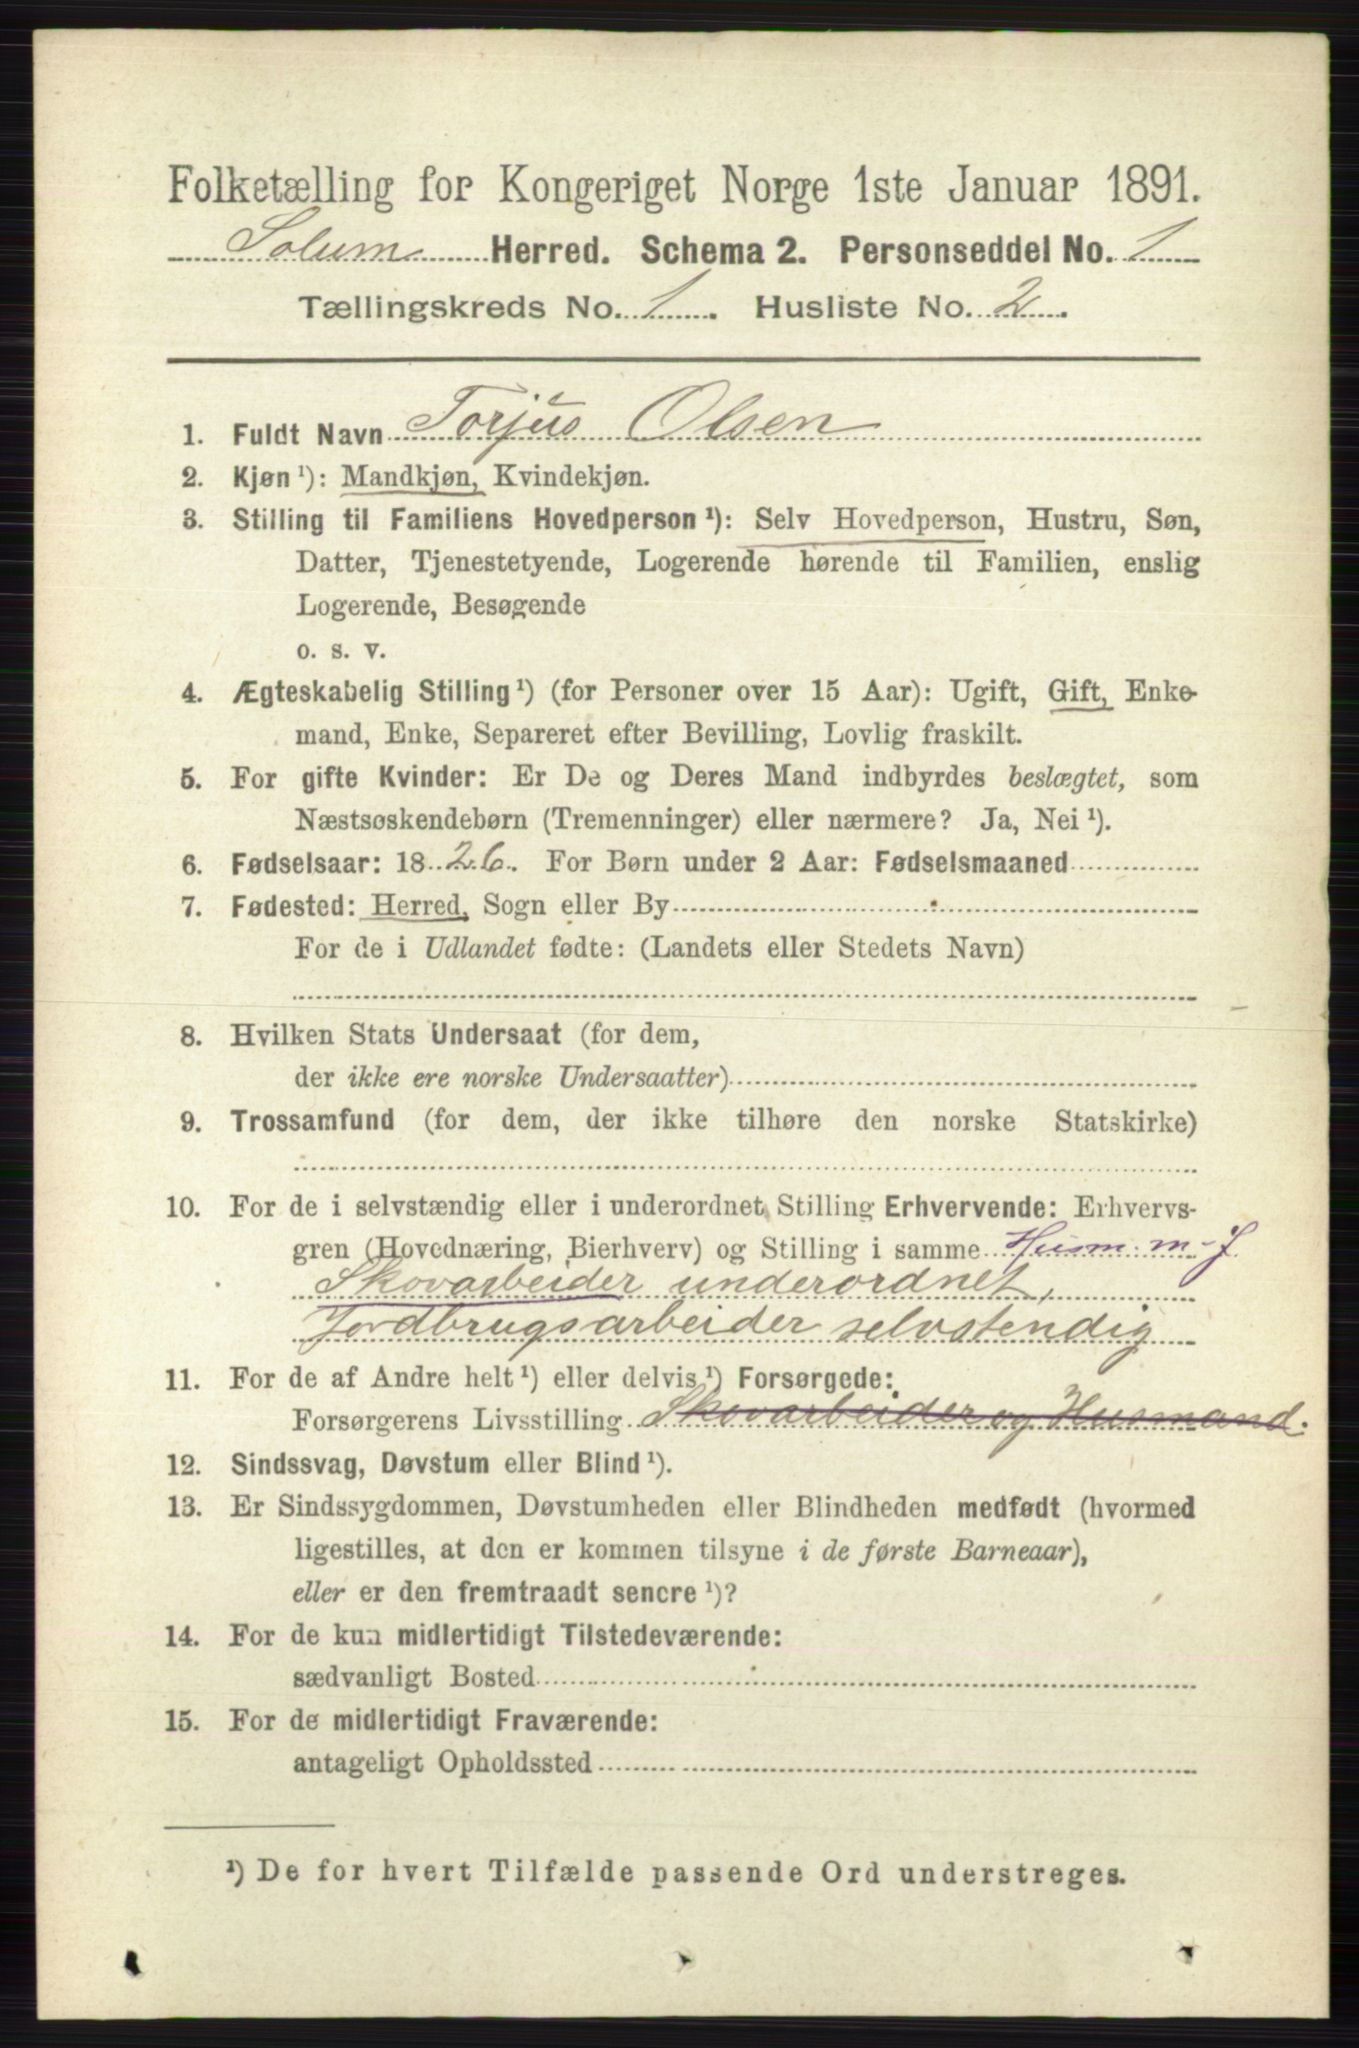 Folketælling for Kongeriget Norge 1ste Januar 1891.
Solum Herred. Schema 2. Personseddel No. 1
Tællingskreds No. 1. Husliste No. 2.
1. Fuldt Navn Torjus Olsen
2. Kjøn ¹): Mandkjøn, Kvindekjøn.
3. Stilling til Familiens Hovedperson ¹): Selv Hovedperson, Hustru, Søn,
Datter, Tjenestetyende, Logerende hørende til Familien, enslig
Logerende, Besøgende
o. s. v.
4. Ægteskabelig Stilling ¹) (for Personer over 15 Aar): Ugift, Gift, Enke-
mand, Enke, Separeret efter Bevilling, Lovlig fraskilt.
5. For gifte Kvinder: Er De og Deres Mand indbyrdes beslægtet, som
Næstsøskendebørn (Tremenninger) eller nærmere? Ja, Nei ¹).
6. Fødselsaar: 1826. For Børn under 2 Aar: Fødselsmaaned
7. Fødested: Herred, Sogn eller By
For de i Udlandet fødte: (Landets eller Stedets Navn)
8. Hvilken Stats Undersaat (for dem,
der ikke ere norske Undersaatter)
9. Trossamfund (for dem, der ikke tilhøre den norske Statskirke)
10. For de i selvstændig eller i underordnet Stilling Erhvervende: Erhvervs-
gren (Hovednæring, Bierhverv) og Stilling i samme Husm. m-J
Skovarbeider underordnet,
Jordbrugsarbeider selvstendig
11. For de af Andre helt ¹) eller delvis ¹) Forsørgede:
Forsørgerens Livsstilling Skovarbeider og Husmand.
12. Sindssvag, Døvstum eller Blind ¹).
13. Er Sindssygdommen, Døvstumheden eller Blindheden medfødt (hvormed
ligestilles, at den er kommen tilsyne i de første Barneaar),
eller er den fremtraadt senere ¹)?
14. For de kun midlertidigt Tilstedeværende:
sædvanligt Bosted
15. For de midlertidigt Fraværende:
antageligt Opholdssted
¹) De for hvert Tilfælde passende Ord understreges.